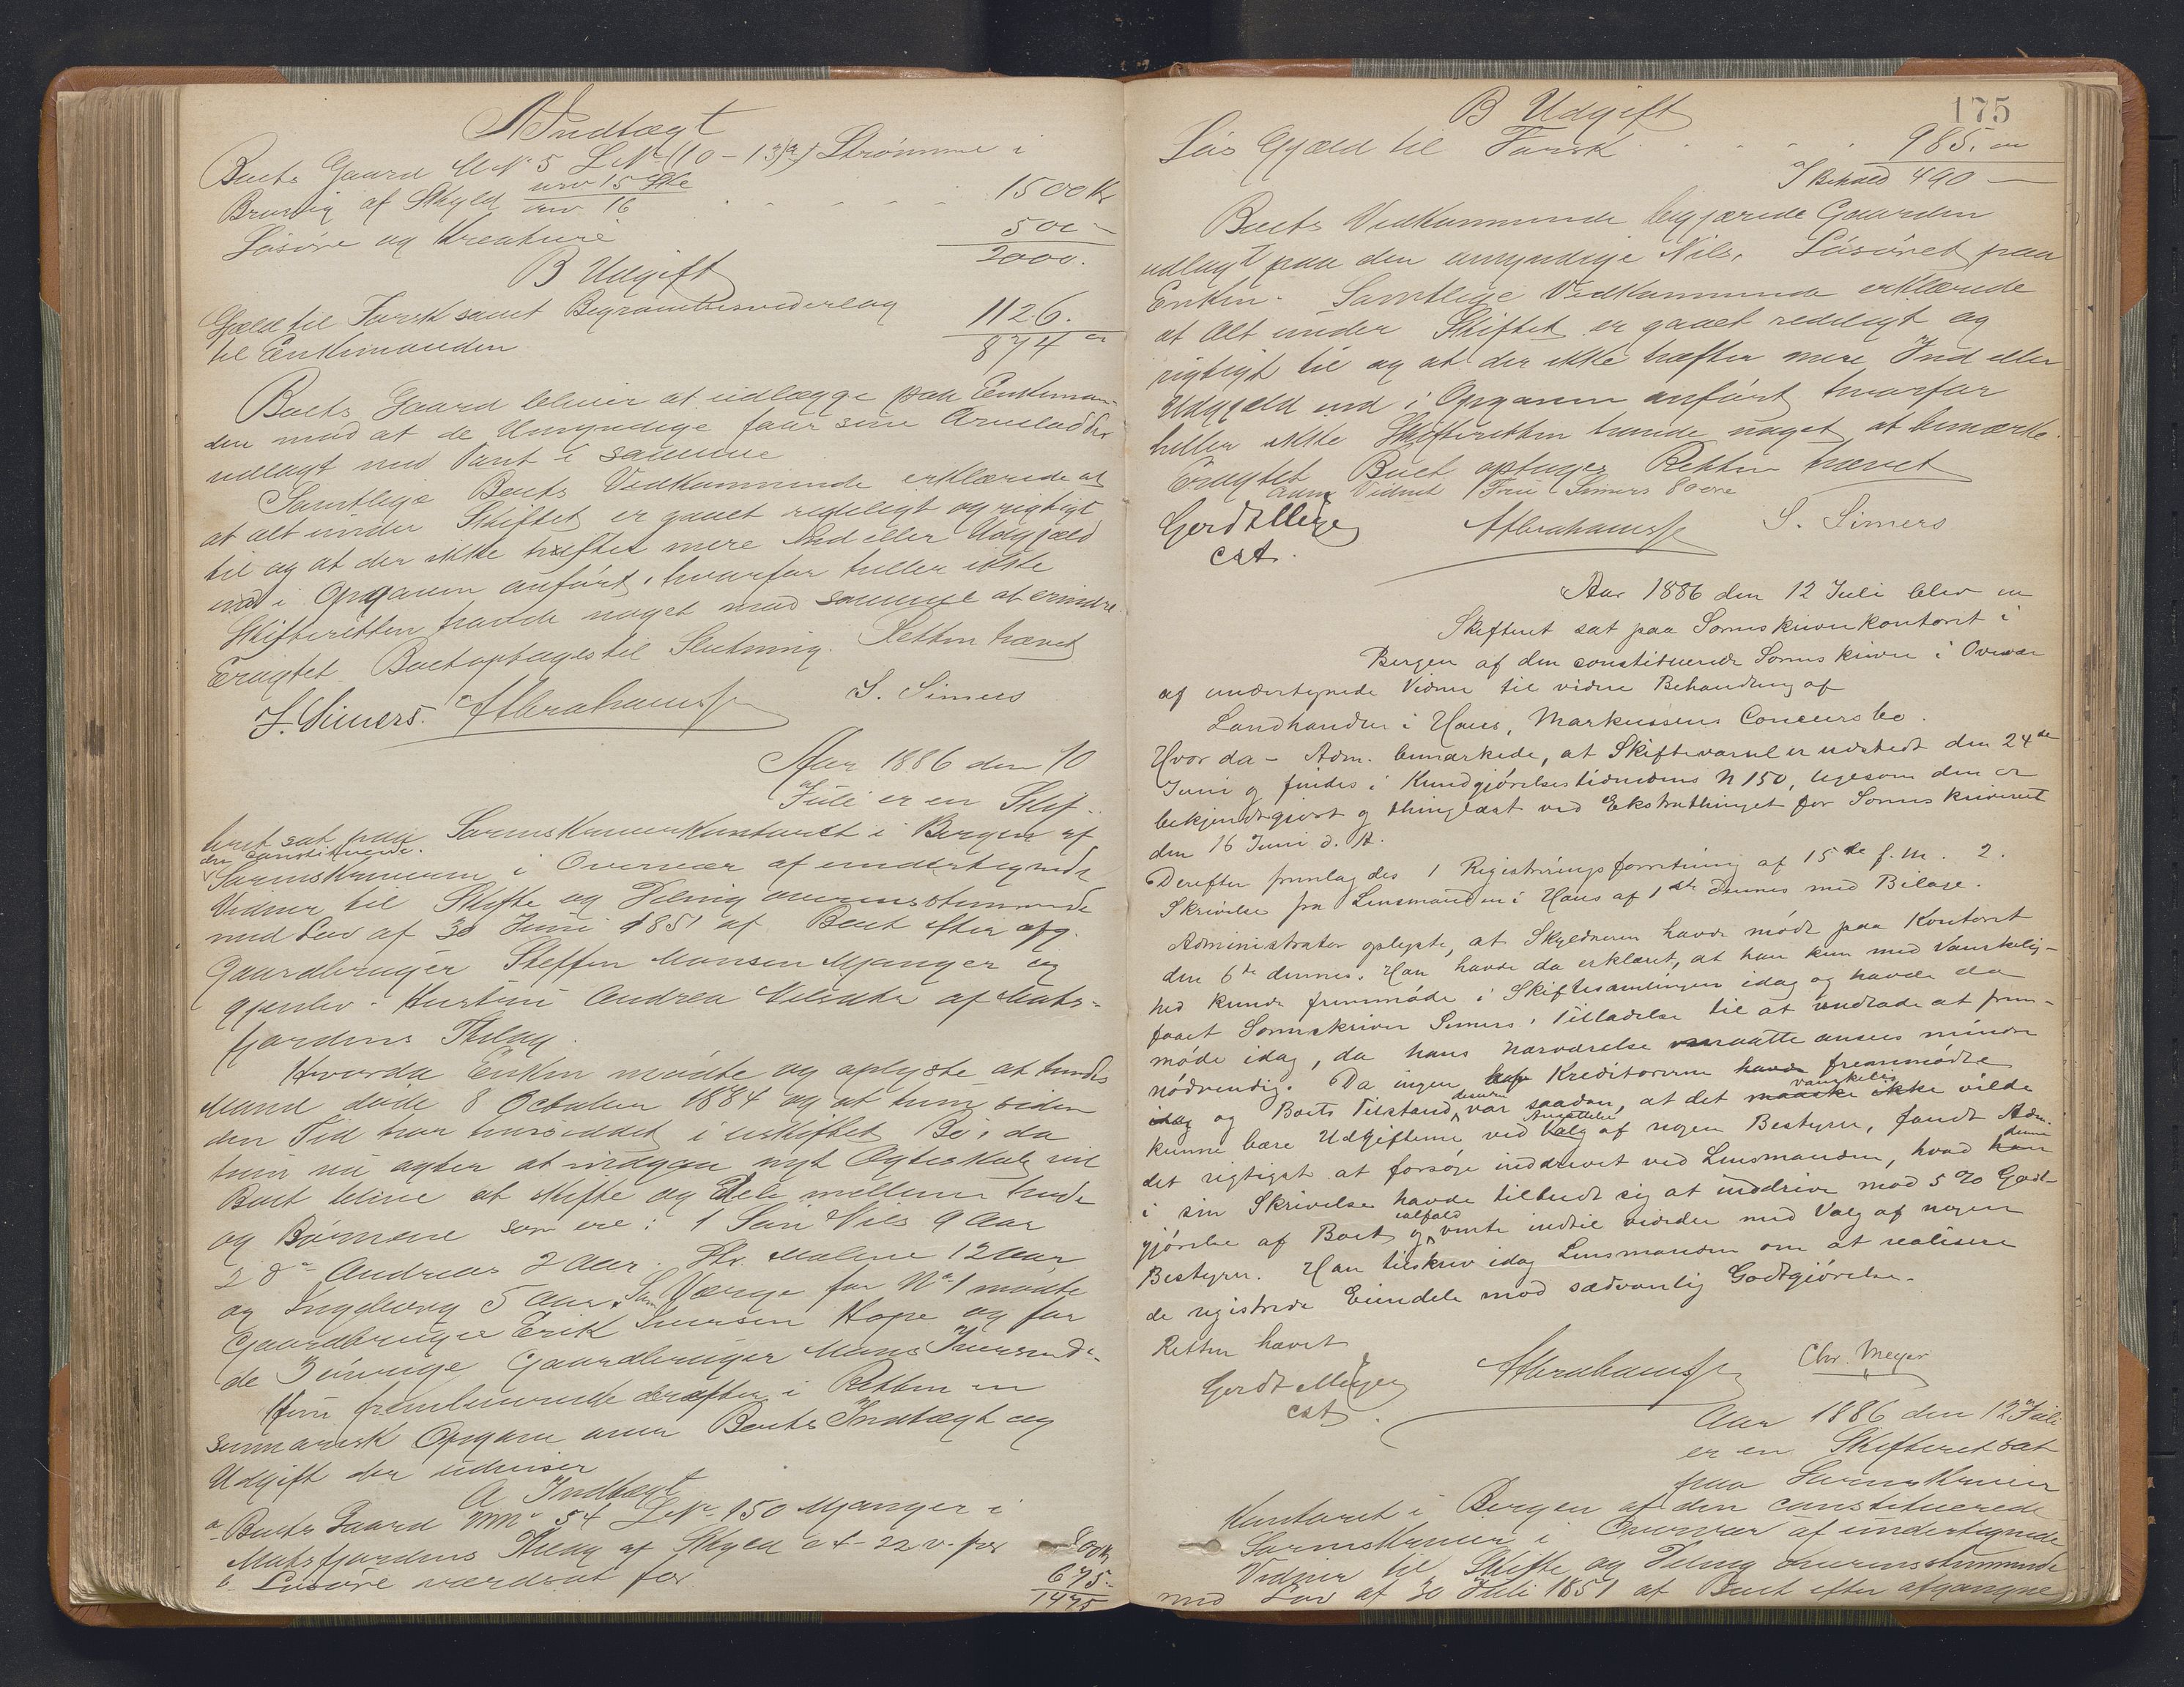 A Indtægt
Boets Gaard M N 5 L No (10 - 13) a) Strømme i
Bruvig af Skyld urev 15 Ske / urev 16 . . . . . 1500 Kr
Løsøre og Kreature 500 -
2000.
B Udgift
Gjæld til Forsk samt Begravelsesvederlag
til Enkemanden 1126.
874
Boets Gaard bliver at udlægge paa Enkeman-
den mod at de Umyndige faar sine Arvelodder
udlagt med Pant i samme
Samtlige Boets Vedkommende erklærede at
at alt under Skiftet er gaaet redeligt og rigtigt
til og at der ikke hæfter mere Ind eller Udgjæld
end i Opgaven anført, hvorfor heller ikke
Skifteretten havde noget mod samme at erindre.
Eragtet Boet optages til Slutning. Retten hævet
J. Simers. Abrahams S. Simers
Aar 1886 den 10
Juli er en Skif-
teret sat paa Sorenskriverkontoret i Bergen af
den constituerede
Sorenskriveren i Overvær af undertegnede
Vidner til Skifte og Deling overensstemmende
med Lov af 30 Juni 1851 af Boet efter afg.
Gaardbruger Steffen Monsen Mjanger og
gjenlev. Hustru Andrea Nilsdtr af Mats-
fjordens Thilag.
Hvorda Enken mødte og oplyste at hendes
Mand døde 8 October 1884 og at hun siden
den Tid har hensiddet i uskiftet Bo, da
hun nu agter at indgaa nyt Ægteskab vil
Boet blive at skifte og dele mellem hende
og Børnene som ere: 1 Søn Nils 9 Aar
2 do Andreas 2 Aar. Dtr. Malene 12 Aar
og Ingeborg 5 Aar. Som Værge for No 1 mødte
Gaardbruger Erik Iversen Hope og for
de Øvrige Gaardbruger Mons Iversen do
Hun fremleverede derefter i Retten en
summarisk Opgave over Boets Indtægt og
Udgift der udviser
A Indtægt
a Boets Gaard MN 54 L No 150 Mjanger i
Matsfjordens Thilag af Skyld 2 - 22 v. for 800 Kr
b Løsøre værdsat for 675 -
1475
175
B Udgift
Løs Gjæld til Forsk . . . . . 985. -
I Behold 490 -
Boets Vedkommende begjærede Gaarden
udlagt paa den umyndige Nils. Løsøret paa
Enken. Samtlige Vedkommende erklærede
at alt under Skiftet er gaaet redeligt og
rigtigt til og at der ikke hæfter mere Ind eller
Udgjæld end i Opgaven anført, hvorfor
heller ikke Skifteretten havde noget at bemærke.
Eragtet Boet optages Retten hævet
Vidnet Simers 80 øre
Gerdt Meyer Abrahams S. Simers
cst.
Aar 1886 den 12 Juli blev en
Skifteret sat paa Sorenskriverkontoret i
Bergen af den constituerede Sorenskriver i Overvær
af undertegnede Vidner til videre Behandling af
Landhandler i Haus, Markussens Concursbo.
Hvor da - Adm. bemærkede, at Skiftevarsel er udstedt den 24de
Juni og findes i Kundgjørelsestidendens N 150, ligesom den er
bekjendtgjort og thinglæst ved Ekstrathinget for Sorenskriveriet
den 16 Juni d. A.
Derefter fremlagdes 1 Registreringsforretning af 15de f. M. 2.
Skrivelse fra Lensmanden i Haus af 1ste dennes med Bilage.
Administrator oplyste, at Skyldneren havde mødt paa Kontoret
den 6te dennes. Han havde da erklæret, at han kun med Vanskelig-
hed kunde fremmøde i Skiftesamlingen idag og havde da
faaet Sorenskriver Simers' Tilladelse til at undlade at frem-
møde idag, da hans Nærværelse maatte ansees mindre
nødvendig. Da ingen Kreditorerne havde fremmødte
idag og Boets Tilstand desuden var saadan, at det maaske ikke vanskelig vilde
kunne bære Udgifterne ved Ansættelse Valg af nogen Bestyrer, fandt Adm.
det rigtigst at forsøge inddrivet ved Lensmanden, hvad han denne
i sin Skrivelse havde tilbudt sig at inddrive mod 5 % Godt-
gjørelse af Boet og ialfald vente indtil videre med Valg af nogen
Bestyrer. Han tilskrev idag Lensmanden om at realisere
de registrerede Eiendele mod sædvanlig Godtgjørelse.
Retten hævet
Gerdt Meyer Abrahams Chr. Meyer
cst.
Aar 1886 den 12 Juli
er en Skifteret sat
paa Sorenskriver
Kontoret i Bergen af den constituerede
Sorenskriver i Overvær af undertegnede
Vidner til Skifte og Deling overensstemmende
med Lov af 30 Juli 1851 af Boet efter afgangne